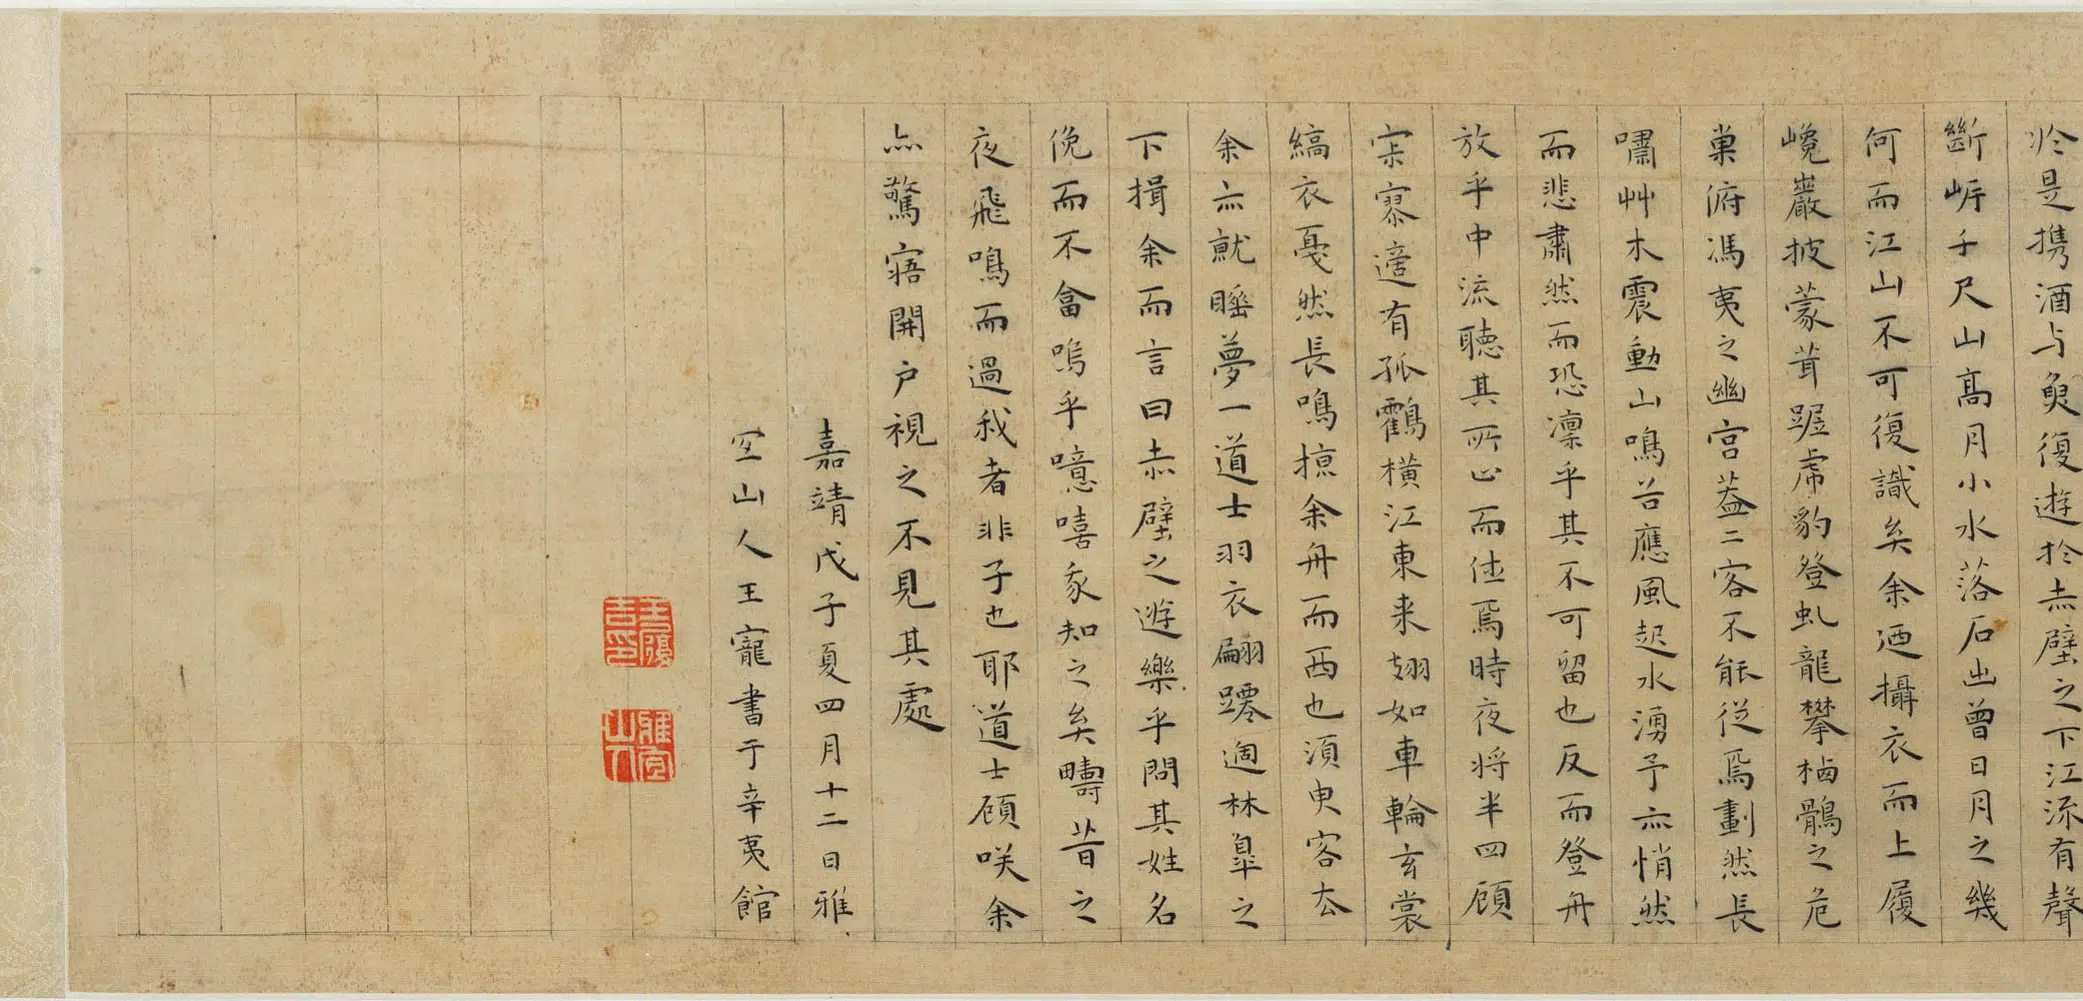 於是携酒与魚復遊於赤壁之下江流有聲
斷岸千尺山高月小水落石出曾日月之幾
何而江山不可復識矣余廼攝衣而上履
巉巖披蒙茸踞虎豹登虬龍攀栖鶻之危
巢俯馮夷之幽宮葢二客不能從焉劃然長
嘯艸木震動山鳴谷應風起水湧予亦悄然
而悲肅然而恐凛乎其不可留也反而登舟
放乎中流聽其所止而休焉時夜將半四顧
寂寥適有孤鶴橫江東来翅如車輪玄裳
縞衣戞然長鳴掠余舟而西也須臾客去
余亦就睡夢一道士羽衣翩躚過林臯之
下揖余而言曰赤壁之遊樂乎問其姓名
俛而不畣嗚乎噫嘻我知之矣疇昔之
夜飛鳴而過我者非子也耶道士顧咲余
亦驚寤開户視之不見其處
嘉靖戊子夏四月十二日雅
宜山人王寵書于辛夷館
王履吉印
雅宜山人